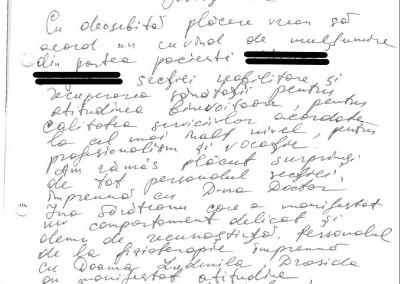 Cu deosebită plăcere vreau să
acord un cuvînd de mulțumire
din partea pacienti
secției reabilitare și
recuperarea sănătății pentru
atitudinea binevoitoare, pentru
calitatea serviciilor acordate
la cel mai nalt nivel, pentru
profesionalism și vocație.
Am rămas plăcut surprinși
de tot personalul secției,
împreună cu D-na Doctor
Ina care a manifestat
un comportament delicat și
demn de recunoștință. Personalul
de la fizioterapie împreună
cu Doamna Ludmila
au manifestat atitudine